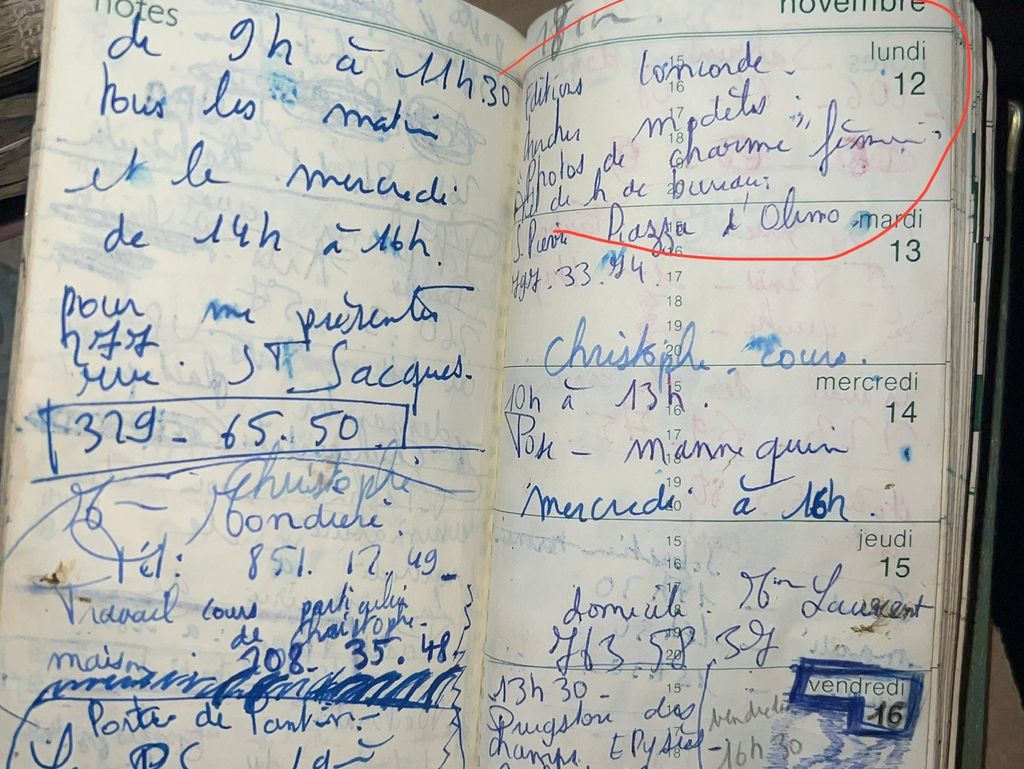 notes
de 9h à 11h.30
tous les matin
et le mercredi
de 14h à 16h.
pour me présenter
277
rue ST Jacques.
329 - 65. 50.
Christophe
Mondieri
Tél: 851. 17. 49
Travail cours particulier
de Christophe.
maison 208. 35. 48
Porte de Pantin.
novembre
18h
lundi
12
Editions Concorde.
cherches modèles
Photos de "charme" "fémini"
de h de bureau:
S. Pierre Piazza d'Olmo
797. 33. 74.
mardi
13
Christophe. cours.
mercredi
14
10h à 13h.
Pose - mannequin
mercredi à 16h.
jeudi
15
domicile. Laurgent
763. 58. 37
vendredi
16
13h30 -
Drugstore des
champs Elysées -
vendredi
16h30
15
16
17
18
19
20